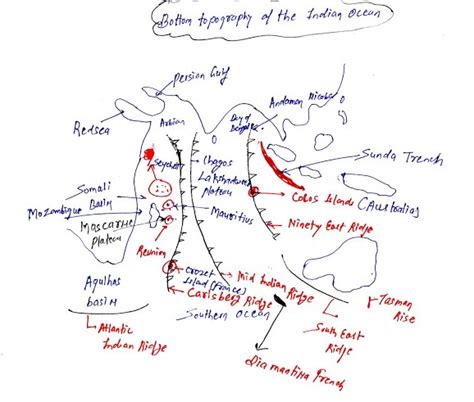 Bottom topography of the Indian Ocean
Persian Gulf
Andaman Nicobar
Redsea
Arbian
Bay of
Bengal
Sunda Trench
Chagos
Lakshadweep
Plateau
Somali
Basin
Cocos Islands (Australia)
Mozambique
Mauritius
Mascarene
plateau
Ninety East Ridge
Reunion
Crozet
Island (France)
Mid Indian Ridge
Agulhas
basin
Carlsberg Ridge
Southern Ocean
Tasman
Rise
Atlantic
Indian Ridge
South East
Ridge
Diamantina Trench